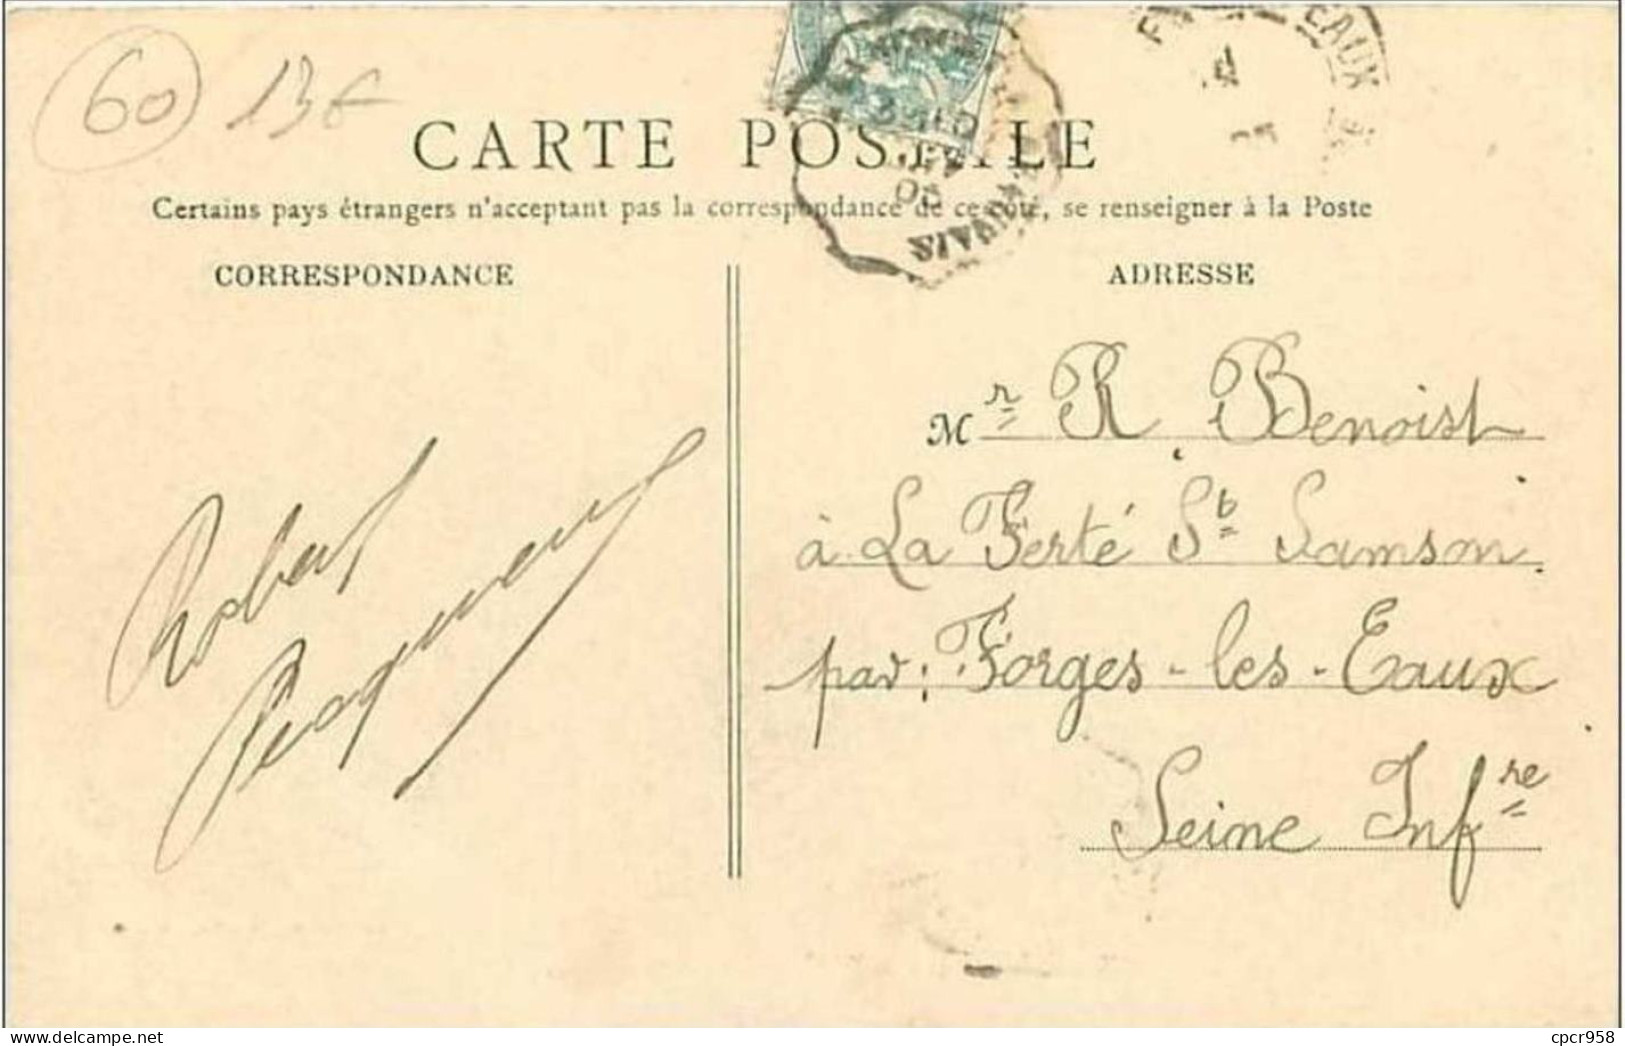 60 13€
CARTE POSTALE
Certains pays étrangers n'acceptant pas la correspondance de ce côté, se renseigner à la Poste
CORRESPONDANCE
ADRESSE
Mr R Benoist
à La Ferté St Samson
par Forges-les-Eaux
Seine Infre
Robert
EAUX
BEAUVAIS
05
cpcr958